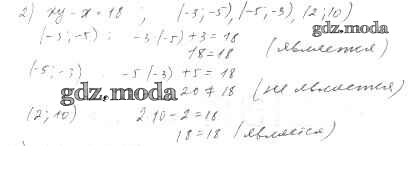 2) xy - x = 18 ; (-3; -5), (-5; -3), (2; 10)
gdz.moda
(-3; -5) : -3·(-5) + 3 = 18
18 = 18 (является)
(-5; -3) -5·(-3) + 5 = 18
gdz.moda
20 ≠ 18 (не является)
(2; 10) 2·10 - 2 = 18
18 = 18 (является)